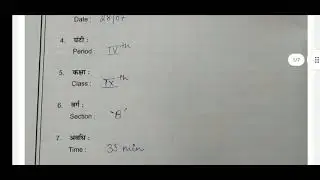 Date : 28/07
4. घंटी :
Period : IVth
5. कक्षा :
Class : IXth
6. वर्ग :
Section : 'B'
7. अवधि :
Time : 35 min
1/7